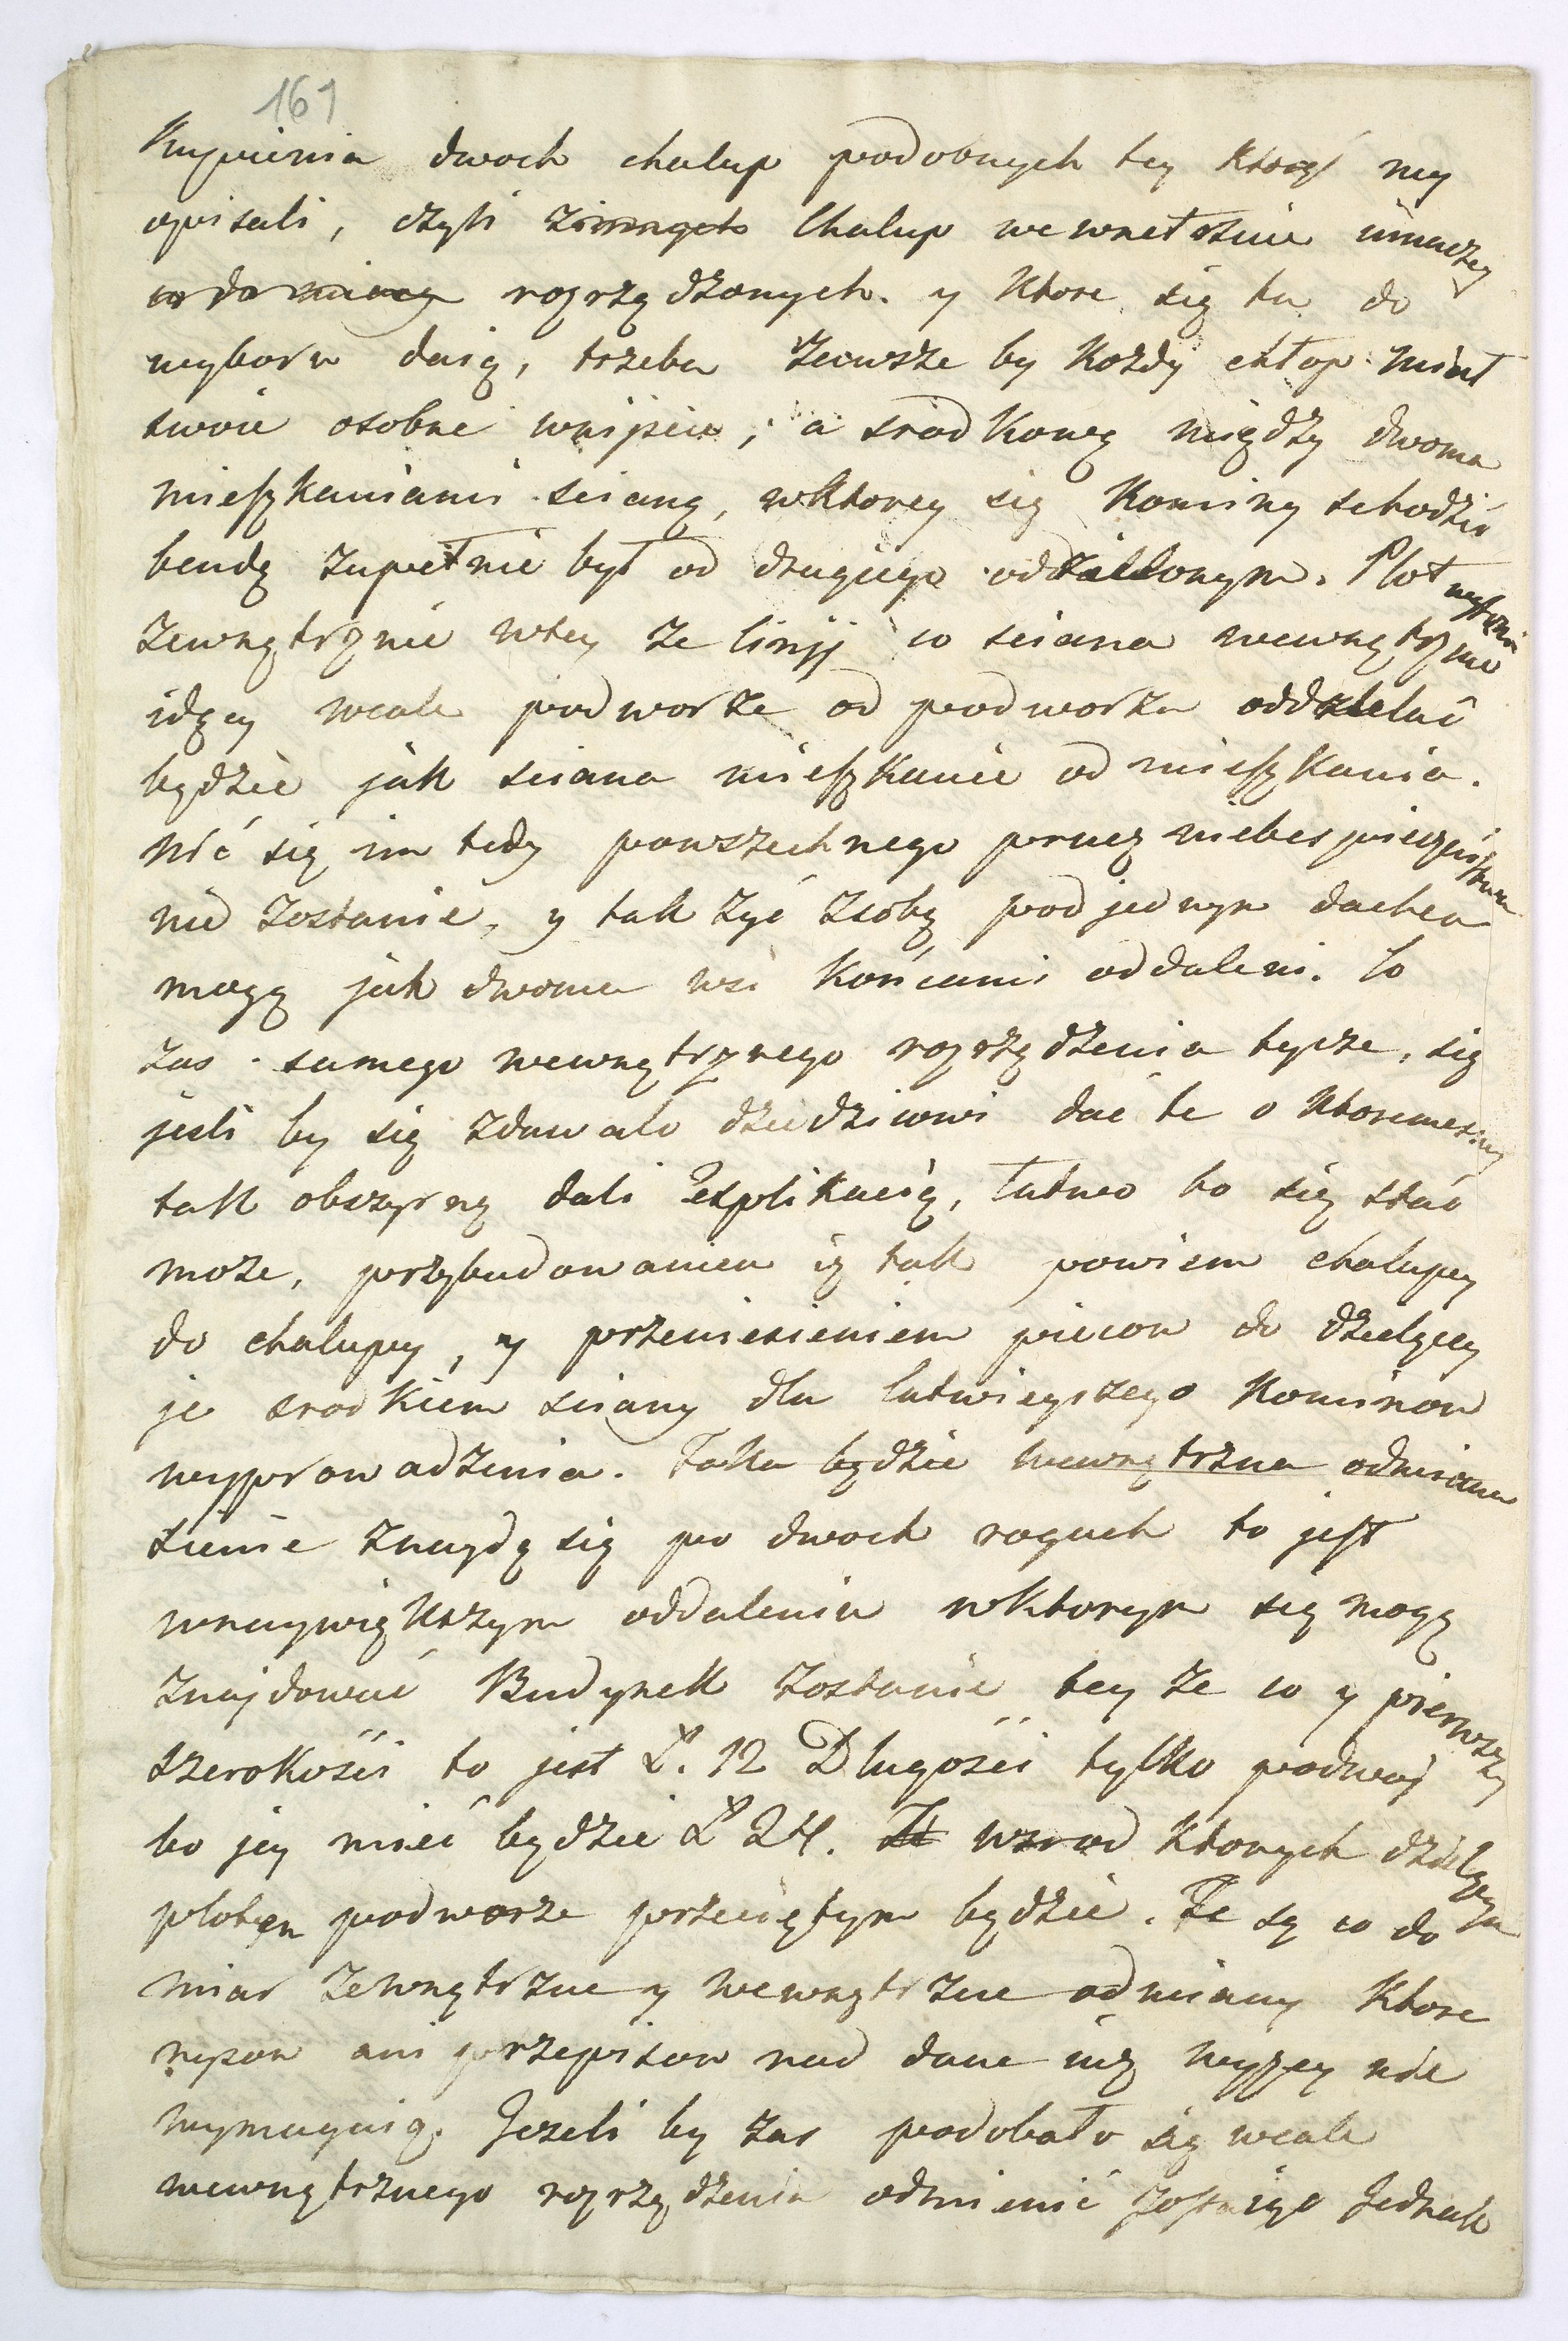 161
Kupienia dwoch chalup podobnych tey ktorą my
opisali, czyli zinnych Chalup wewnętrznie inaczey
rozrządzonych. y ktore się tu do
wyboru daią, trzeba zawsze by każdy chłop miał
swoie osobne wnijscie; a srodkową między dwoma
mieszkaniami scianą, wktorey się Kominy schodzić
bendą zupełnie był od drugiego oddzielonym. Płot
zewnętrznie wtey ze linji co sciana wewnętrznie
idący wcale podworze od podworza oddzielać
będzie jak sciana mieszkanie od mieszkania.
Nic się im tedy powszechnego prucz niebespieczenstwa
nie zostanie, y tak żyć zsobą pod jednym dachem
mogą jak dwoma wsi końcami oddaleni. Co
zas samego wewnętrznego rozrządzenia tycze, się
jesli by się zdawalo dziedzicowi dać te o ktoresmy
tak obszyrną dali Explikacią, łatwo to się stać
może, przybudowaniem iz tak powiem chalupy
do chalupy, y przeniesieniem piecow do dzielącey
je srodkiem sciany dla latwieyszego Kominow
wyprowadzenia. Taka będzie wewnętrzna odmiana
sienie znaydą się po dwoch rogach to jest
wnaywiększym oddaleniu wktorym się mogą
znajdować Budynek zostanie tey ze co y pierwszy
szerokości to jest Ł. 12 Długości tylko podwoj
bo jey mieć będzie Ł 24. wsrod ktorych dzielącym
plotem podworze przeciętym będzie. Te są co do
miar zewnętrzne y wewnętrzne odmiany ktore
rysow ani przepisow nad dane iuz wyzey nie
wymagaią. Jezeli by zas podobało się wcale
wewnętrznego rozrządzenia odmienić postaige Jednak